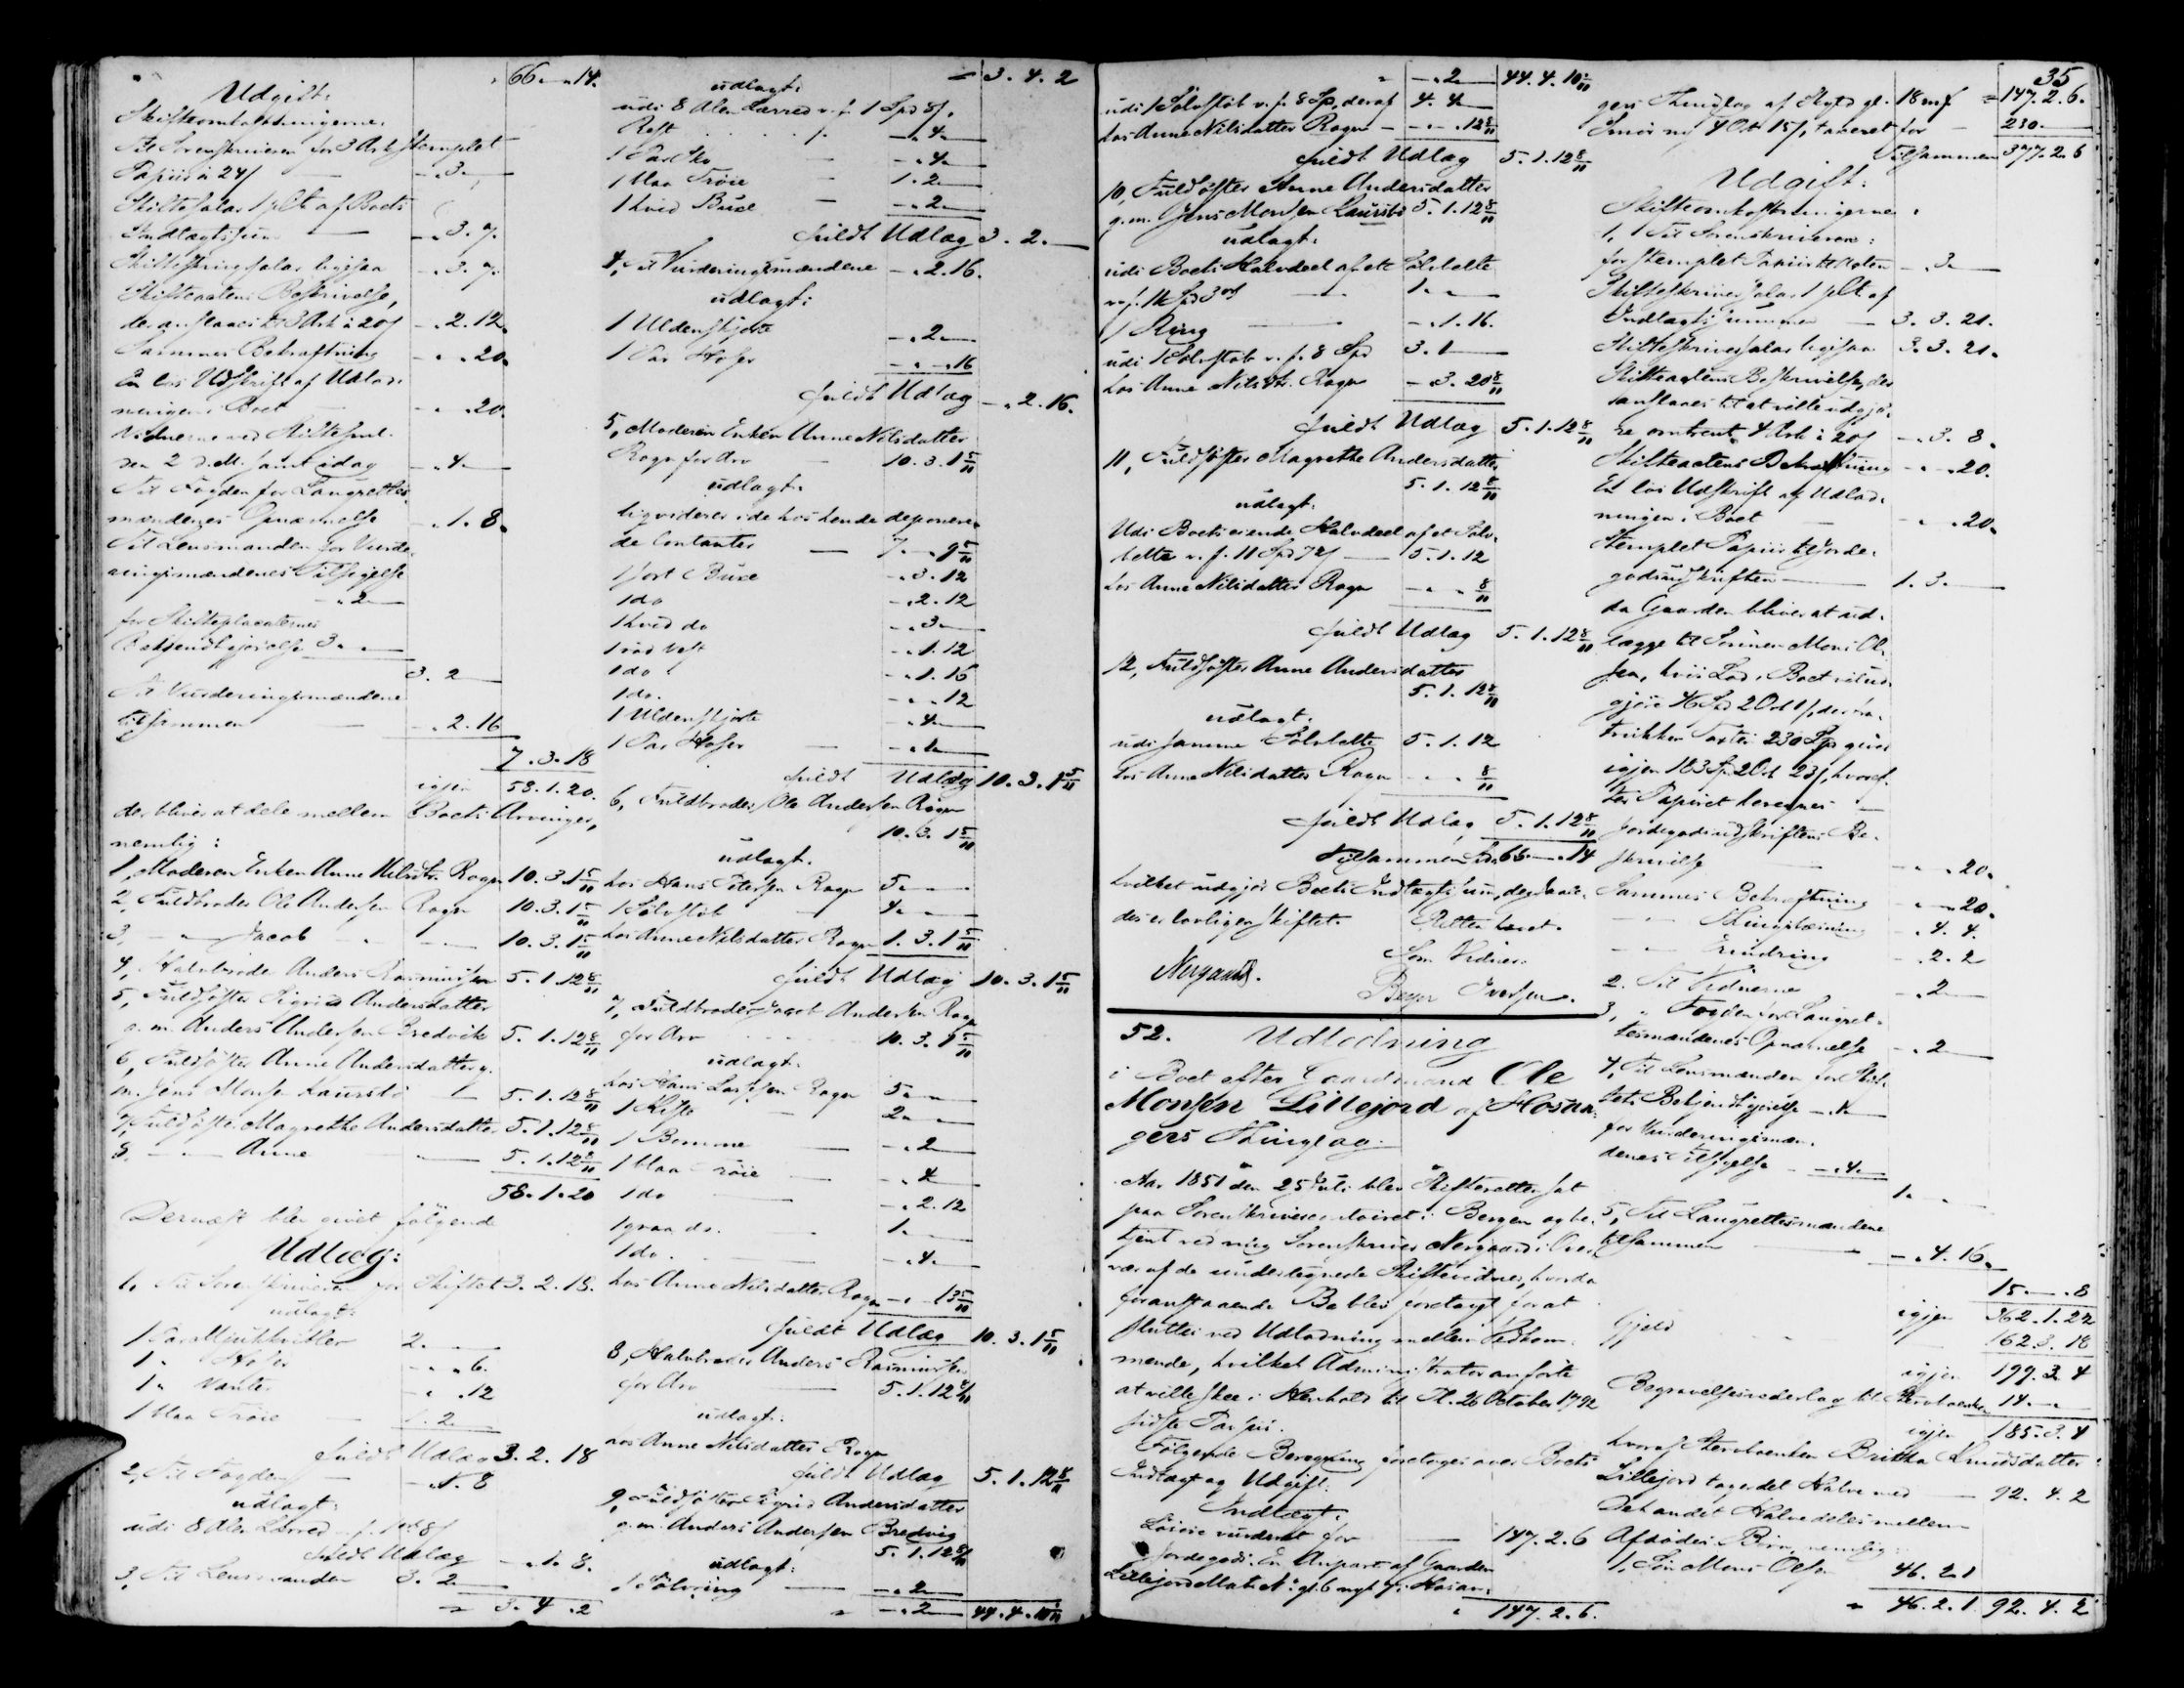 66 " 14.
Udgift:
Skifteomkostningerne.
Til Sorenskriveren for 3 Ark stemplet
Papiir à 24 s — - " 3 " —
Skiftesalar 1 pCt. af Boets
Indtægtssum — - " 3. 7.
Skifteskriversalar ligesaa - " 3. 7.
Skifteactens Beskrivelse,
der anslaaes til 3 Ark à 20 s - " 2. 12.
Sammes Bekræftning - " " 20.
En løs Udskrift af Udlod-
ningen i Boet - " " 20.
Vidnerne ved Skiftesml.
den 2 d. M. samt idag - " 4 " —
Til Fogden for Laugrettes-
mændenes Opnævnelse - " 1. 8.
Til Lensmanden for Vurde-
ringsmændenes Tilsigelse
- " 2 —
for Skifteplacaternes
Bekjendtgjørelse 3 " —
3. 2 —
Til Vurderingsmændene
tilsammen — - " 2. 16
7. 3. 18
igjen 58. 1. 20.
der bliver at dele mellem Boets Arvinger,
nemlig:
1, Moderen Enken Anne Nilsdtr. Rogn 10. 3. 1 5/11
2, Fuldbroder Ole Andersen Rogn 10. 3. 1 5/11
3, — Jacob — " — 10. 3. 1 5/11
4, Halvbroder Anders Rasmussen 5. 1. 12 8/11
5, Fuldsøster Sigrid Andersdatter
g. m. Anders Andersen Bredvik 5. 1. 12 8/11
6, Fuldsøster Anne Andersdatter g.
m. Jens Monsen Laursbø — 5. 1. 12 8/11
7, Fuldsøster Magrethe Andersdatter 5. 1. 12 8/11
8. — Anne — 5. 1. 12 8/11
58. 1. 20
Dernæst blev givet følgende
Udlæg:
1, Til Sorenskriveren for Skiftet 3. 2. 18.
udlagt:
1 Par 2 " —
1 " Hoser - " " 6.
1 " Vanter - " " 12
1 blaa Trøie — 1. 2 —
fuldt Udlæg 3. 2. 18
2, Til Fogden — - " 1. 8
udlagt:
udi 8 Alen Lærred v. f. 1 ort 8 s
fuldt Udlæg - " 1. 8.
3, Til Lensmanden 3. 2 —
" 3. 4. 2
" 3. 4. 2
udlagt:
udi 8 Alen Lærred v. f. 1 Spd 8 s,
Rest - " 4 —
1 Par Sko — - " 4 —
1 blaa Trøie — 1. 2 —
1 hvid Buxe — - " 2 —
fuldt Udlæg 3. 2. —
4, Til Vurderingsmændene - " 2. 16.
udlagt:
1 Uldenskjorte - " 2 —
1 Par Hoser - " " 16
fuldt Udlæg - " 2. 16.
5, Moderen Enken Anne Nilsdatter
Rogn for Arv — 10. 3. 1 5/11
udlagt:
ligviderer i de hos hende deponere-
de Contanter — 7 " 9 5/11
1 sort Buxe - " 3. 12
1 do - " 2. 12
1 hvid do - " 3 —
1 rød Vest - " 1. 12
1 do. - " 1. 16
1 do. - " " 12
1 Uldenskjorte - " 4 —
1 Par Hoser — - " 1 —
fuldt Udlæg 10. 3. 1 5/11
6, Fuldbroder Ole Andersen Rogn
10. 3. 1 5/11
udlagt.
hos Hans Petersen Rogn 5 " —
1 Sølvstøb — 4 " —
hos Anne Nilsdatter Rogn 1. 3. 1 5/11
fuldt Udlæg 10. 3. 1 5/11
7, Fuldbroder Jacob Andersen Rogn
for Arv 10. 3. 1 5/11
udlagt.
hos Hans Larssen Rogn 5 " —
1 Kiste — 2 " —
1 Bomme — - " 2 —
1 blaa Trøie — - " 4
1 do — - " 2. 12
1 graa do. — 1 —
1 do. — - " 4 —
hos Anne Nilsdatter Rogn - " " 13 5/11
fuldt Udlæg 10. 3. 1 5/11
8, Halvbroder Anders Rasmussen
for Arv — 5. 1. 12 8/11
udlagt:
hos Anne Nilsdatter Rogn
fuldt Udlæg 5. 1. 12 8/11
9, Fuldsøster Sigrid Andersdatter
g. m. Anders Andersen Bredvig
5. 1. 12 8/11
udlagt:
1 Sølvring — - " 2 —
" - " 2 — 44. 4. 10 /11
" - " 2 — 44. 4. 10 /11
udi 1 Sølvstøb v. f. 8 Sp, deraf 4. 4 —
hos Anne Nilsdatter Rogn — - " " 12 8/11
fuldt Udlæg 5. 1. 12 8/11
10, Fuldsøster Anne Andersdatter
g. m. Jens Monsen Laursbø 5. 1. 12 8/11
udlagt:
udi Boets Halvdeel af ett Sølvbelte
v. f. 11 Spd 3 ort — 1 " —
1 Ring — - " 1. 16.
udi 1 Sølvstøb v. f. 8 Spd 3. 1 —
hos Anne Nilsdtr. Rogn - " 3. 20 8/11
fuldt Udlæg 5. 1. 12 8/11
11, Fuldsøster Magrethe Andersdatter
5. 1. 12 8/11
udlagt:
Udi Boets eiende Halvdeel af et Sølv-
belte v. f. 11 Spd 72 s — 5. 1. 12
hos Anne Nilsdatter Rogn - " " 8/11
fuldt Udlæg 5. 1. 12 8/11
12, Fuldsøster Anne Andersdatter
5. 1. 12 8/11
udlagt.
udi samme Sølvbelte 5. 1. 12
hos Anne Nilsdatter Rogn - " " 8/11
fuldt Udlæg 5. 1. 12 8/11
Tilsammen Spd 66 " 14
hvilket udgjør Boets Indtægtssum, der saale-
des er lovligen skiftet. Retten hævet.
Som Vidner:
Nergaard. Iversen.
52. Udlodning
i Boet efter Gaardmand Ole
Monsen Lillejord af Hosan-
gers Thinglag.
Aar 1851 den 25 Juli blev Skifteretten sat
paa Sorenskrivercontoiret i Bergen og be-
tjent ved mig Sorenskriver Nergaard i Over-
vær af de undertegnede Skiftevidner, hvorda
foranstaaende Bo blev foretaget for at
sluttes ved Udlodning mellem Vedkom-
mende, hvilket Administrator anførte
at ville skee i Henhold til Pl. 26 October 1792
sidste Passus.
Følgende Beregning foretoges over Boets
Indtægt og Udgift.
Indtægt:
Løsøre vurderet for — 147. 2. 6
Jordegods: En Anpart af Gaarden
Lillejord Matr. No. gl. 6 nyt 7 i Hosan-
" 147. 2. 6.
35
" 147. 2. 6.
gers Thinglag af Skyld gl. 18 mf
Smør ny 4 Ort 15 s, taxeret for — 230 —
Tilsammen 377. 2. 6
Udgift:
Skifteomkostningerne:
1, Til Sorenskriveren:
for stemplet Papiir til Acten - " 3 —
Skifteskriversalar 1 pCt. af
Indtægtssummen — 3. 3. 21.
Skifteskriversalar ligesaa 3. 3. 21.
Skifteactens Beskrivelse, der
anslaaes til at ville udgjø-
re omtrent 4 Ark à 20 s - " 3. 8.
Skifteactens Bekræftning - " " 20.
En løs Udskrift af Udlod-
ningen i Boet - " " 20.
Stemplet Papiir til Jorde-
godsudskriften — 1. 3 —
da Gaarden bliver at ud-
lægge til Sønnen Mons Ol-
sen, hvis Lod i Boet vil ud-
gjøre 46 Spd 2 Ort 1 s, der fra-
trukken Taxten 230 Spd giver
igjen 183 Sp 2 Ort 23 s, hvoref-
ter Papiret beregnes —
Jordegodsudskriftens Be-
skrivelse - " " 20.
Sammes Bekræftning - " " 20.
— " — Thinglæsning - " 4. 4.
— " — Erindring - " 2. 2
2. Til Vidnerne - " 2 —
3, " Fogden for Laugret-
tesmændenes Opnævnelse - " 2 —
4, Til Lensmanden for Skif-
tets Bekjendtgjørelse - " 1 —
for Vurderingsmæn-
denes Tilsigelse - " 4 —
1 " —
5, Til Laugrettesmændene
tilsammen — - " 4. 16.
15 " 8
igjen 362. 1. 22
Gjeld 162. 3. 18
igjen 199. 3. 4
Begravelsesvederlag til Stervboenken 14 " —
igjen 185. 3. 4
hvoraf Stervboenken Britha Knudsdatter
Lillejord tager det Halve med — 92. 4. 2
Det andet Halve deles mellem
Afdødes Børn, nemlig:
1, Søn Mons Olsen 46. 2. 1
" 46. 2. 1. 92. 4. 2